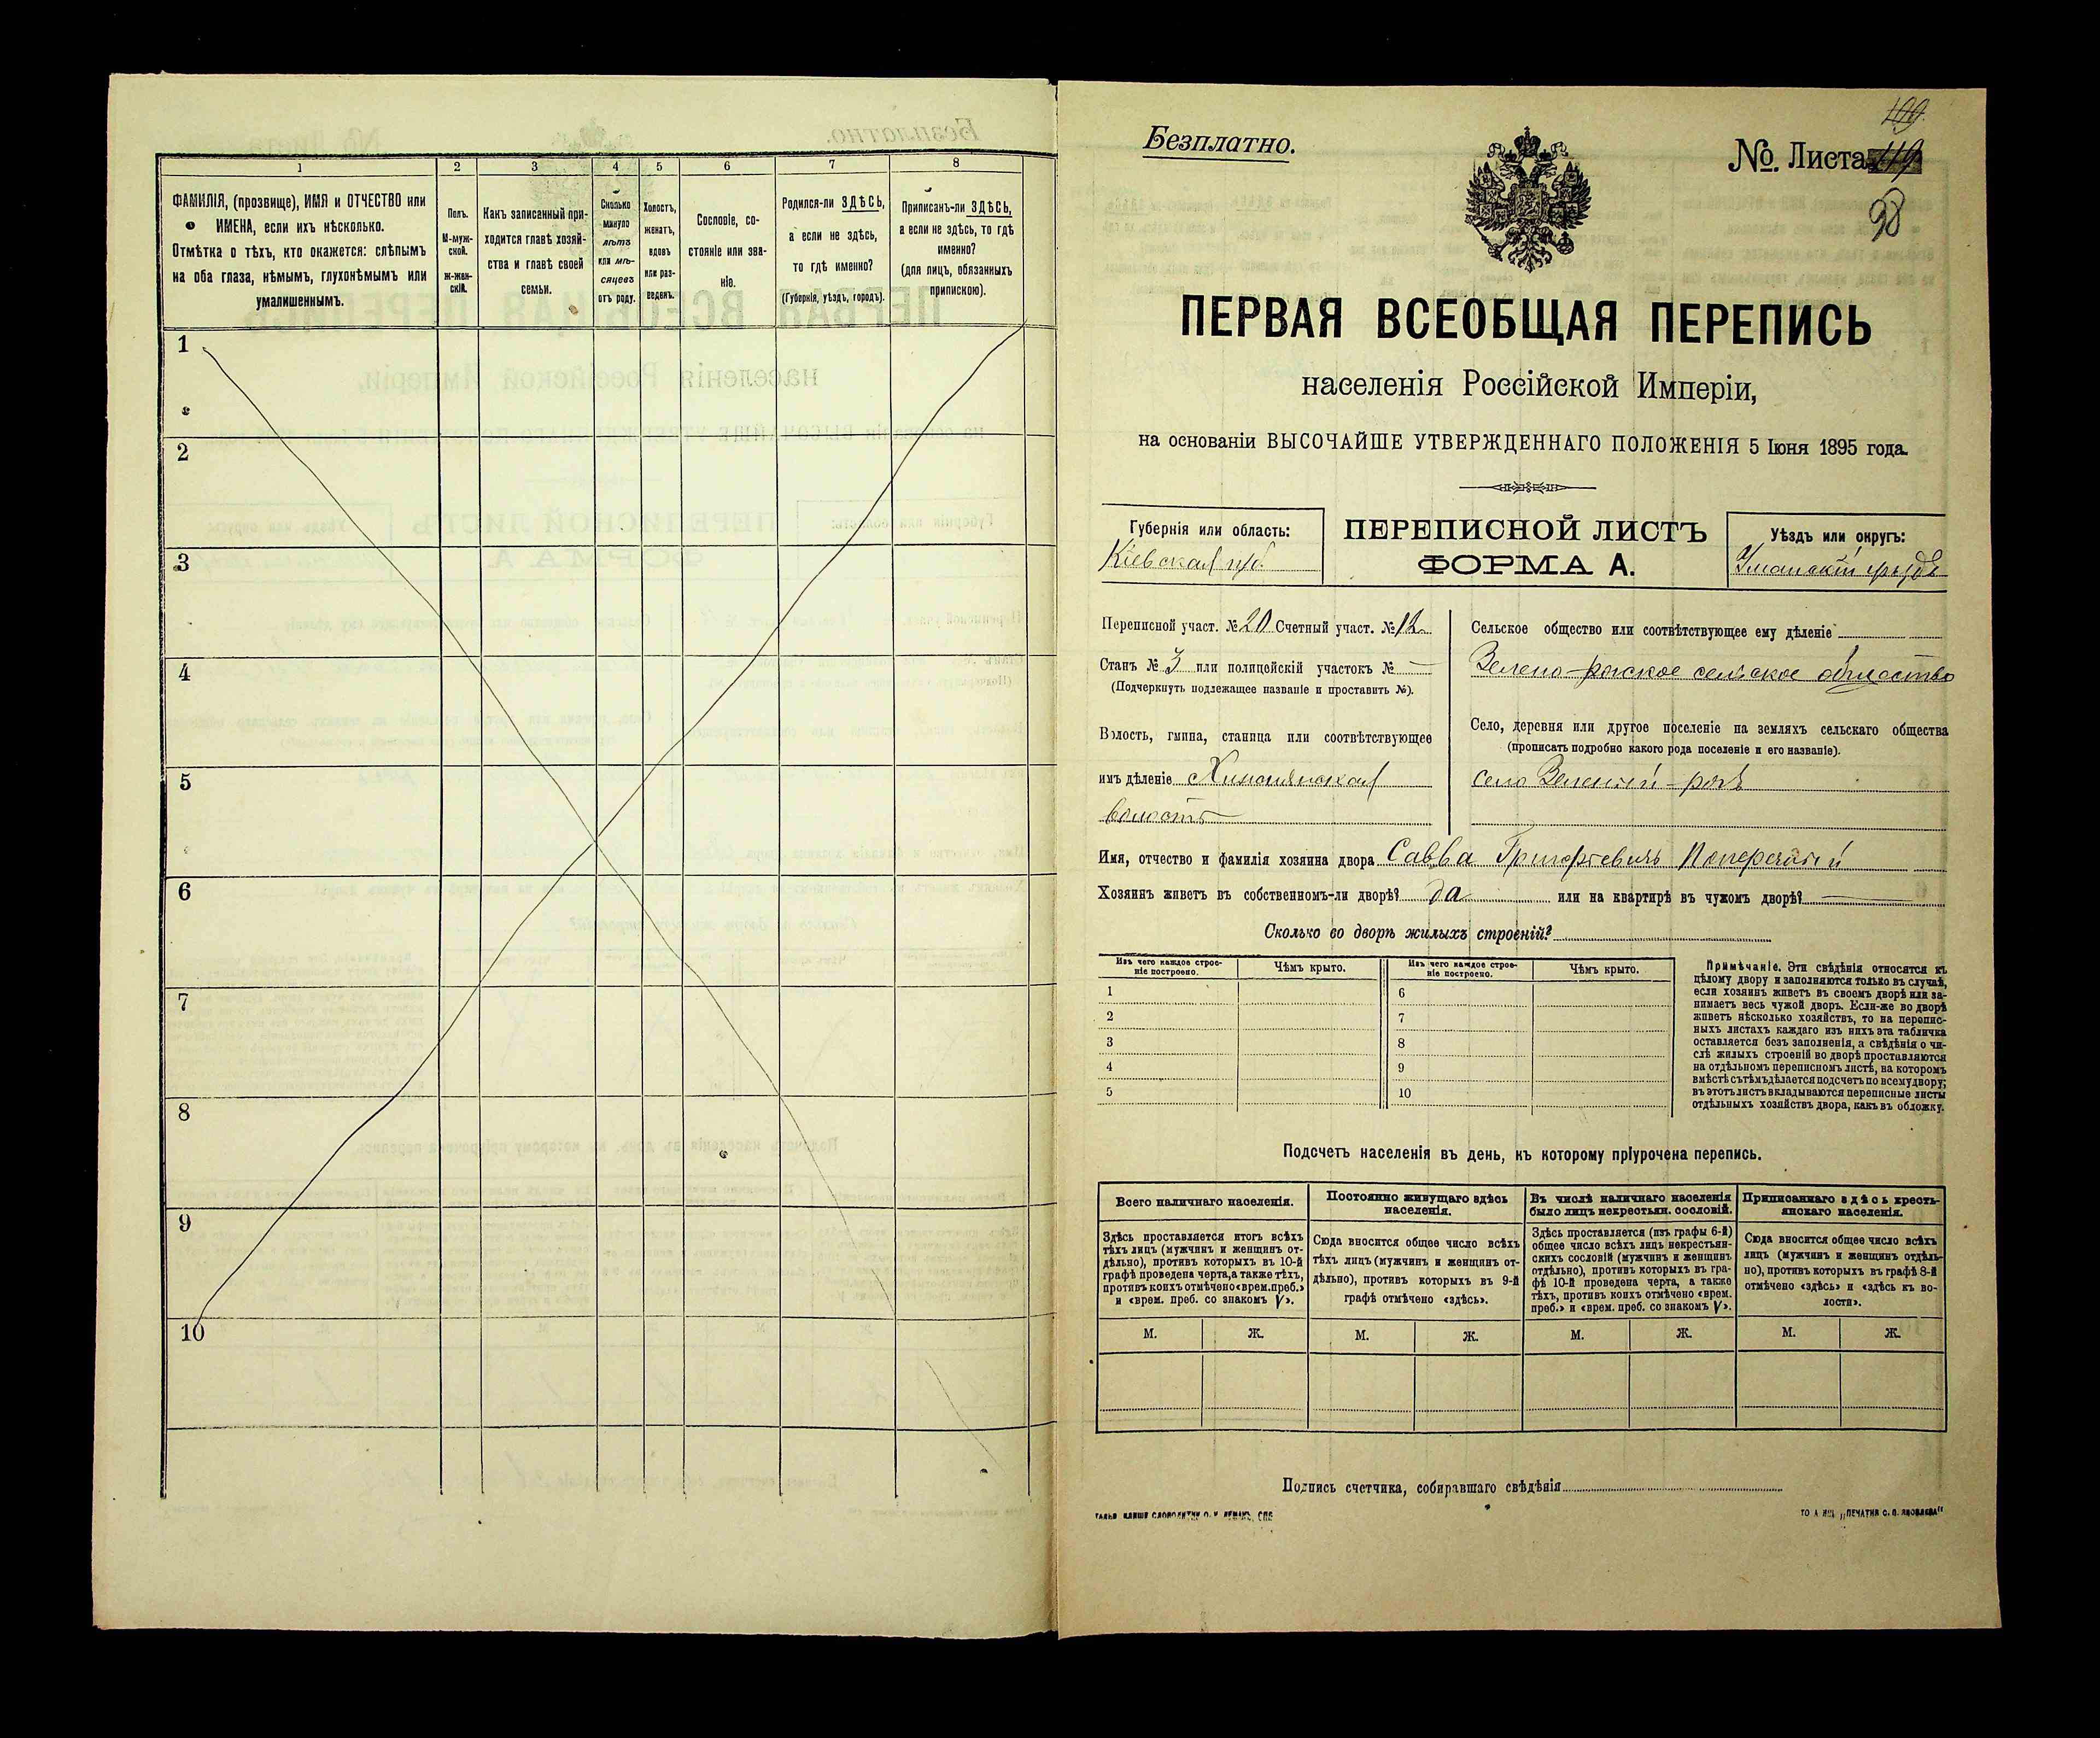 1 2 3 4 5 6 7 8
ФАМИЛІЯ, (прозвище), ИМЯ и ОТЧЕСТВО или
ИМЕНА, если ихъ нѣсколько.
Отмѣтка о тѣхъ, кто окажется: слѣпымъ
на оба глаза, нѣмымъ, глухонѣмымъ или
умалишеннымъ.
Полъ.
М-муж-
ской.
Ж-жен-
скій.
Какъ записанный при-
ходится главѣ хозяй-
ства и главѣ своей
семьи.
Сколько
минуло
лѣтъ
или мѣ-
сяцевъ
отъ роду.
Холостъ,
женатъ,
вдовъ
или раз-
веденъ.
Сословіе, со-
стояніе или зва-
ніе.
Родился-ли ЗДѢСЬ,
а если не здѣсь,
то гдѣ именно?
(Губернія, уѣздъ, городъ).
Приписанъ-ли ЗДѢСЬ,
а если не здѣсь, то гдѣ
именно?
(для лицъ, обязанныхъ
припискою).
1
2
3
4
5
6
7
8
9
10
109
Безплатно.
№. Листа 119
98
ПЕРВАЯ ВСЕОБЩАЯ ПЕРЕПИСЬ
населенія Россійской Имперіи,
на основаніи ВЫСОЧАЙШЕ УТВЕРЖДЕННАГО ПОЛОЖЕНІЯ 5 Іюня 1895 года.
Губернія или область:
Кіевская губ.
ПЕРЕПИСНОЙ ЛИСТЪ
ФОРМА А.
Уѣздъ или округъ:
Уманскій уѣздъ
Переписной участ. № 20 Счетный участ. № 12
Станъ № 3 или полицейскій участокъ № —
(Подчеркнуть подлежащее названіе и проставить №).
Волость, гмина, станица или соотвѣтствующее
имъ дѣленіе
волость
Сельское общество или соотвѣтствующее ему дѣленіе
Зелено-рожское сельское общество
Село, деревня или другое поселеніе на земляхъ сельскаго общества
(прописать подробно какого рода поселеніе и его названіе).
село Зеленый-рогъ
Имя, отчество и фамилія хозяина двора Савва Григорьевичъ
Хозяинъ живетъ въ собственномъ-ли дворѣ? да или на квартирѣ въ чужомъ дворѣ? —
Сколько во дворѣ жилыхъ строеній?
Изъ чего каждое строе-
ніе построено.
Чѣмъ крыто.
Изъ чего каждое строе-
ніе построено.
Чѣмъ крыто.
1 6
2 7
3 8
4 9
5 10
Примѣчаніе. Эти свѣдѣнія относятся къ
цѣлому двору и заполняются только въ случаѣ,
если хозяинъ живетъ въ своемъ дворѣ или за-
нимаетъ весь чужой дворъ. Если-же во дворѣ
живетъ нѣсколько хозяйствъ, то на перепис-
ныхъ листахъ каждаго изъ нихъ эта табличка
оставляется безъ заполненія, а свѣдѣнія о чи-
слѣ жилыхъ строеній во дворѣ проставляются
на отдѣльномъ переписномъ листѣ, на которомъ
вмѣстѣ съ тѣмъ дѣлается подсчетъ по всему двору;
въ этотъ листъ вкладываются переписные листы
отдѣльныхъ хозяйствъ двора, какъ въ обложку.
Подсчетъ населенія въ день, къ которому пріурочена перепись.
Всего наличнаго населенія.
Постоянно живущаго здѣсь
населенія.
Въ числѣ наличнаго населенія
было лицъ некрестьян. сословій.
Приписаннаго здѣсь кресть-
янскаго населенія.
Здѣсь проставляется итогъ всѣхъ
тѣхъ лицъ (мужчинъ и женщинъ от-
дѣльно), противъ которыхъ въ 10-й
графѣ проведена черта, а также тѣхъ,
противъ коихъ отмѣчено «врем. преб.»
и «врем. преб. со знакомъ V».
Сюда вносится общее число всѣхъ
тѣхъ лицъ (мужчинъ и женщинъ от-
дѣльно), противъ которыхъ въ 9-й
графѣ отмѣчено «здѣсь».
Здѣсь проставляется (изъ графы 6-й)
общее число всѣхъ лицъ некрестьян-
скихъ сословій (мужчинъ и женщинъ
отдѣльно), противъ которыхъ въ гра-
фѣ 10-й проведена черта, а также
тѣхъ, противъ коихъ отмѣчено «врем.
преб.» и «врем. преб. со знакомъ V».
Сюда вносится общее число всѣхъ
лицъ (мужчинъ и женщинъ отдѣль-
но), противъ которыхъ въ графѣ 8-й
отмѣчено «здѣсь» и «здѣсь къ во-
лости».
М. Ж. М. Ж. М. Ж. М. Ж.
Подпись счетчика, собиравшаго свѣдѣнія